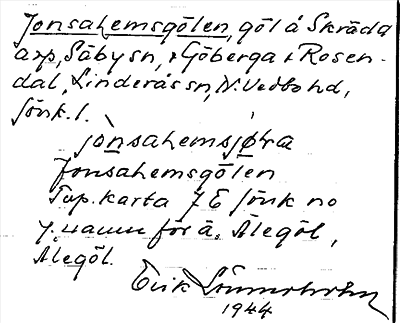 Jonsahemsgölen, göl å Skräda
arp, Säby sn, & Göberga & Rosen-
dal, Linderås sn, N. Vedbo hd,
Jönk. l.
jònsahemsjøra
Jonsahemsgölen
Top. karta 7 E Jönk no
J. namn för ä. Ålegöl,
Ålegöl.
Erik
1944